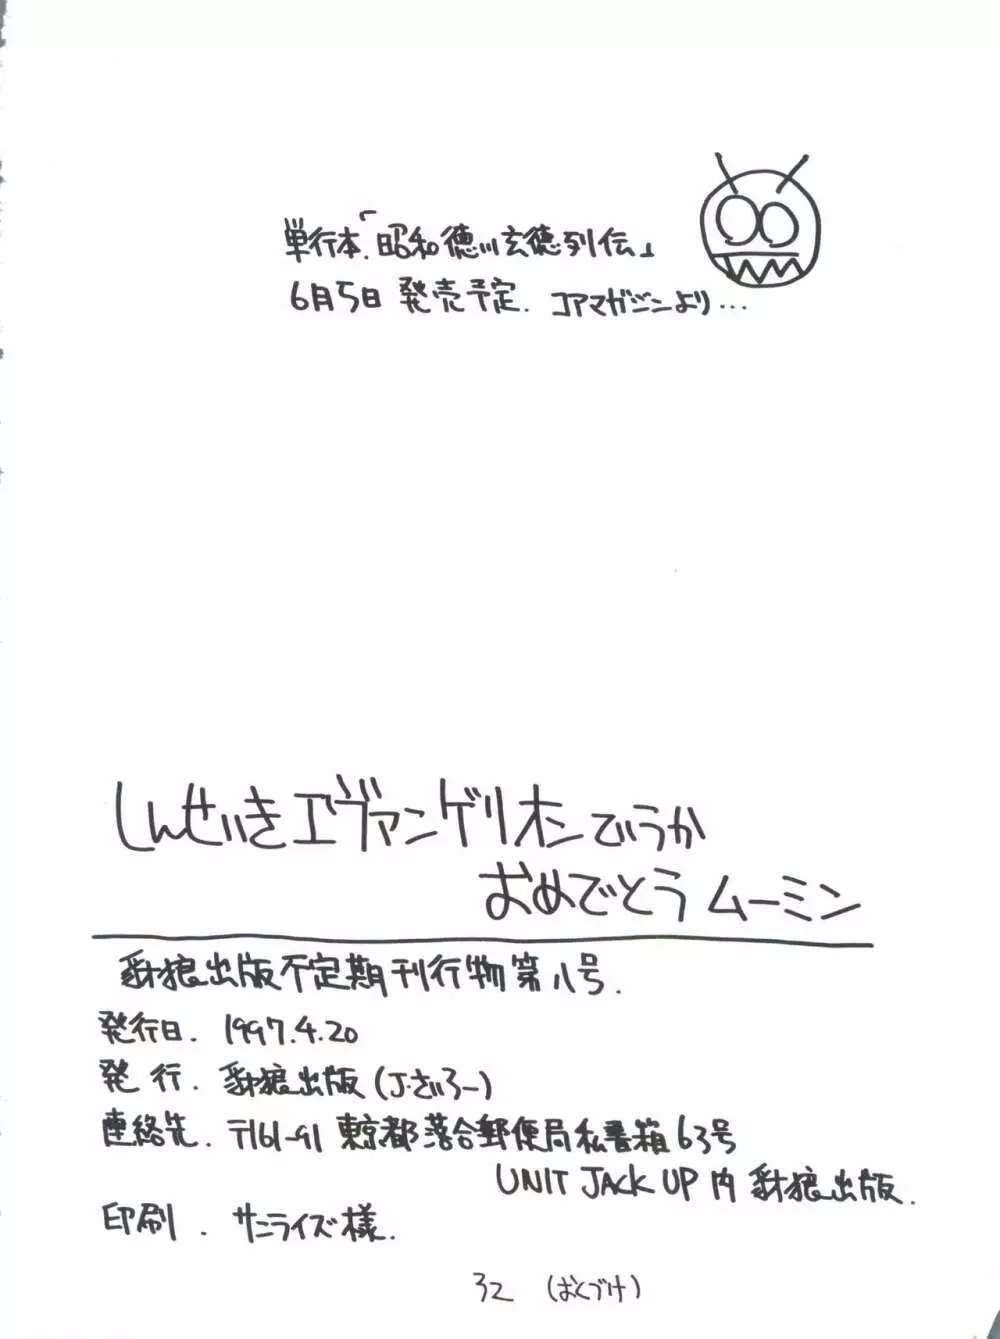 単行本「昭和徳川玄徳列伝」
6月5日 発売予定. コアマガジンより...
しんせいきエヴァンゲリオンてぃうか
おめでとうムーミン
豺狼出版不定期刊行物第八号.
発行日. 1997.4.20
発行. 豺狼出版(J.さいろー)
連絡先. 〒161-91 東京都落合郵便局私書箱63号
UNIT JACK UP内 豺狼出版.
印刷. サンライズ様.
32 (おくづけ)